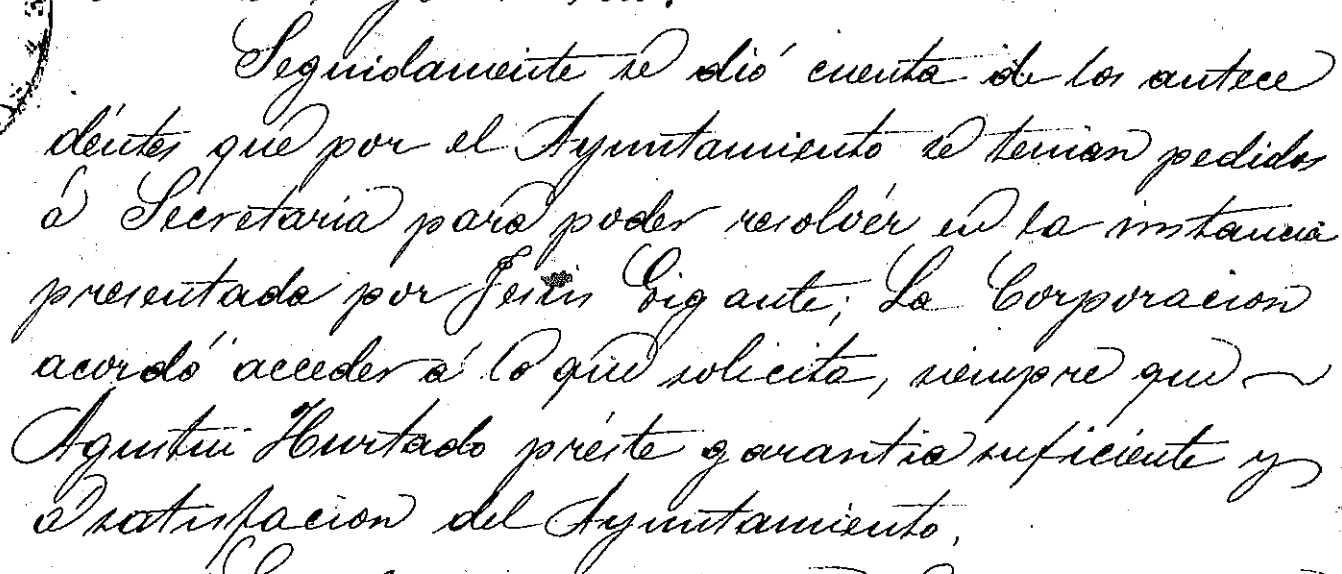 Seguidamente se dió cuenta de los antece
dentes que por el Ayuntamiento se tenian pedidos
á Secretaría para poder resolver en la instancia
presentada por Jesús Gigante; La Corporacion
acordó acceder á lo que solicita, siempre que
Agustin Hurtado preste garantia suficiente y
á satisfacion del Ayuntamiento.